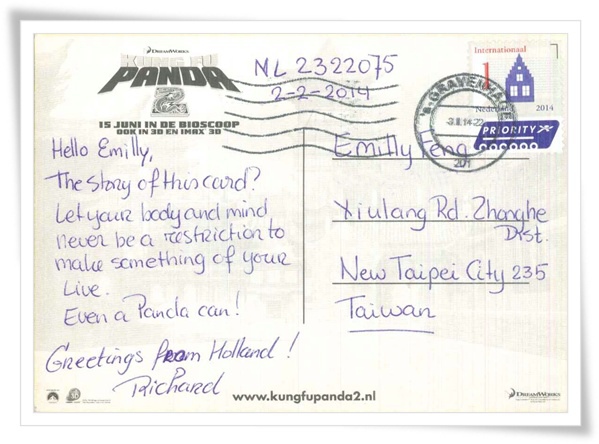 DREAMWORKS
KUNG FU
PANDA
2
15 JUNI IN DE BIOSCOOP
OOK IN 3D EN IMAX 3D
NL 2322075
2-2-2014
Internationaal
1
Nederland 2014
PRIORITY
'S-GRAVENHAGE
201
Hello Emilly,
The story of this card?
Let your body and mind
never be a restriction to
make something of your
Live.
Even a Panda can!
Greetings from Holland!
Richard
Emilly Feng
Xiulang Rd. Zhonghe
Dist.
New Taipei City 235
Taiwan
www.kungfupanda2.nl
DREAMWORKS